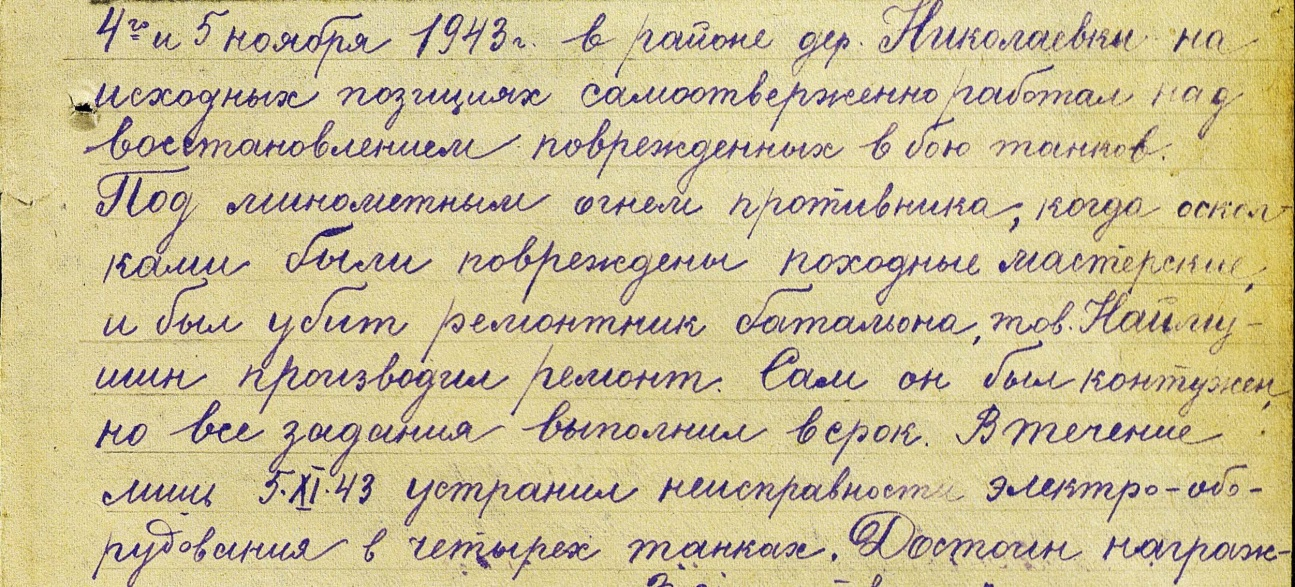 4го и 5 ноября 1943 г. в районе дер. Николаевки на
исходных позициях самоотверженно работал над
восстановлением поврежденных в бою танков.
Под минометным огнем противника, когда оскол-
ками были повреждены походные мастерские,
и был убит ремонтник батальона, тов. Наймушин-
шин производил ремонт. Сам он был контужен,
но все задания выполнил в срок. В течение
лишь 5.XI.43 устранил неисправности электро-обо-
рудования в четырех танках. Достоин награж-